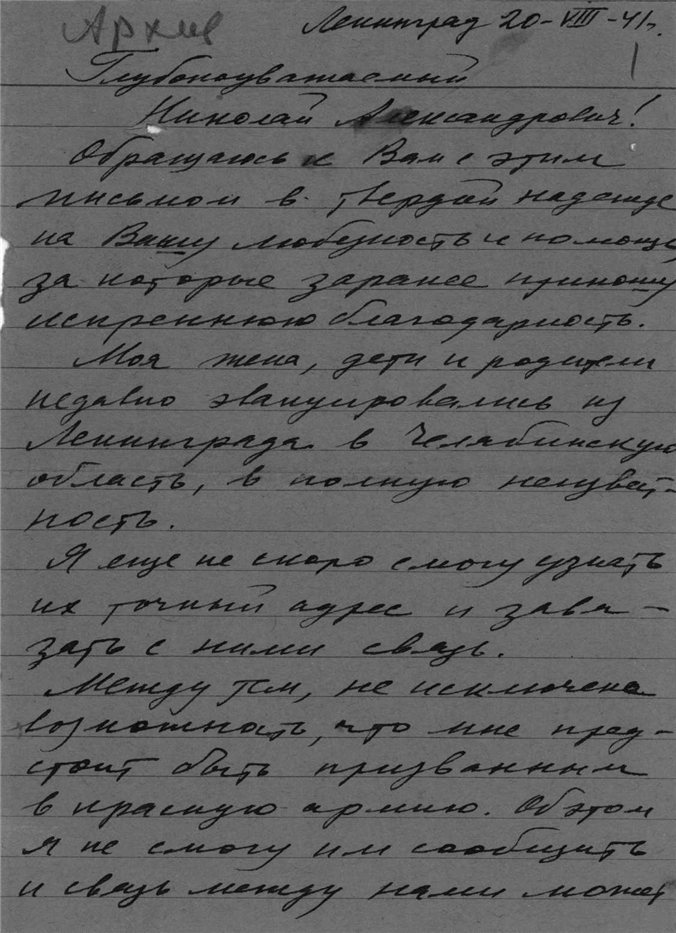 Архив
Ленинград 20-VIII-41г.
1
Глубокоуважаемый
Николай Александрович!
Обращаюсь к Вам с этим
письмом в твердой надежде
на Вашу любезность и помощь,
за которые заранее приношу
искреннюю благодарность.
Моя жена, дети и родители
недавно эвакуировались из
Ленинграда в Челябинскую
область, в полную неизвест-
ность.
Я еще не скоро смогу узнать
их точный адрес и завя-
зать с ними связь.
Между тем, не исключена
возможность, что мне пред-
стоит быть призванным
в красную армию. Об этом
я не смогу им сообщить
и связь между нами может